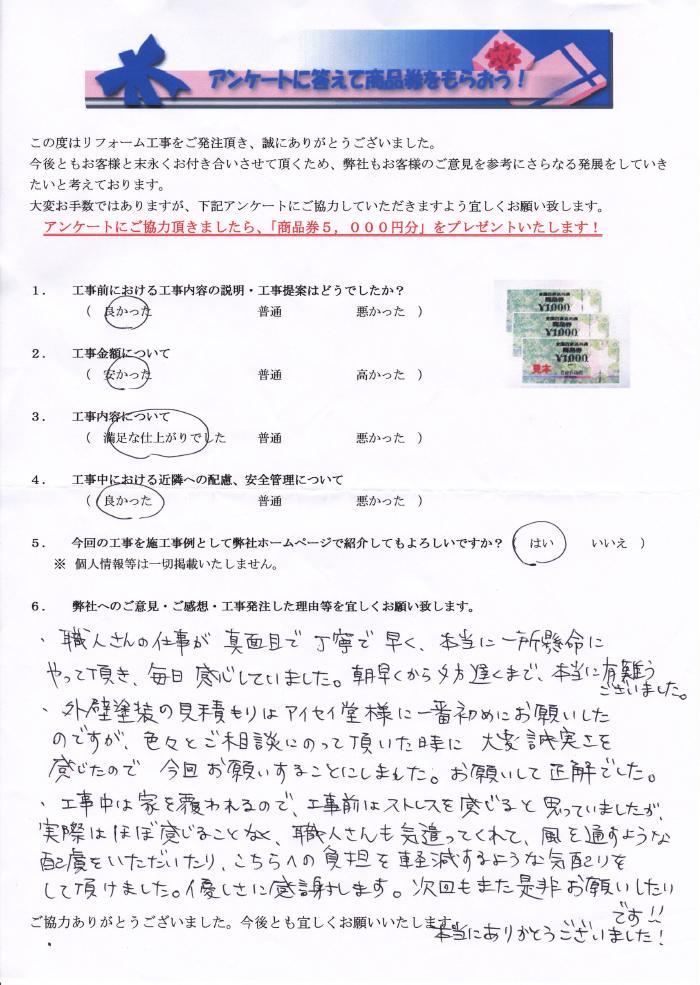 アンケートに答えて商品券をもらおう！
この度はリフォーム工事をご発注頂き、誠にありがとうございました。
今後ともお客様と末永くお付き合いさせて頂くため、弊社もお客様のご意見を参考にさらなる発展をしていき
たいと考えております。
大変お手数ではありますが、下記アンケートにご協力していただきますよう宜しくお願い致します。
アンケートにご協力頂きましたら、「商品券５，０００円分」をプレゼントいたします！
１． 工事前における工事内容の説明・工事提案はどうでしたか？
（ 良かった 普通 悪かった ）
商品券
¥1,000
商品券
¥1,000
商品券
¥1,000
見本
２． 工事金額について
（ 安かった 普通 高かった ）
３． 工事内容について
（ 満足な仕上がりでした 普通 悪かった ）
４． 工事中における近隣への配慮、安全管理について
（ 良かった 普通 悪かった ）
５． 今回の工事を施工事例として弊社ホームページで紹介してもよろしいですか？（ はい いいえ ）
※ 個人情報等は一切掲載いたしません。
６． 弊社へのご意見・ご感想・工事発注した理由等を宜しくお願い致します。
・職人さんの仕事が 真面目で 丁寧で 早く、本当に一所懸命に
やって頂き、毎日 感心していました。朝早くから夕方遅くまで、本当に有難う
ございました。
・外壁塗装の見積もりはアイセイ堂様に一番初めにお願いした
のですが、色々とご相談にのって頂いた時に 大変誠実さを
感じたので 今回お願いすることにしました。お願いして正解でした。
・工事中は家を覆われるので、工事前はストレスを感じると思っていましたが、
実際はほぼ感じることなく、職人さんも気遣ってくれて、風を通すような
配慮をいただいたり、こちらへの負担を軽減するような気配りを
して頂けました。優しさに感謝します。次回もまた是非お願いしたい
です!!
ご協力ありがとうございました。今後とも宜しくお願いいたします。
本当にありがとうございました！